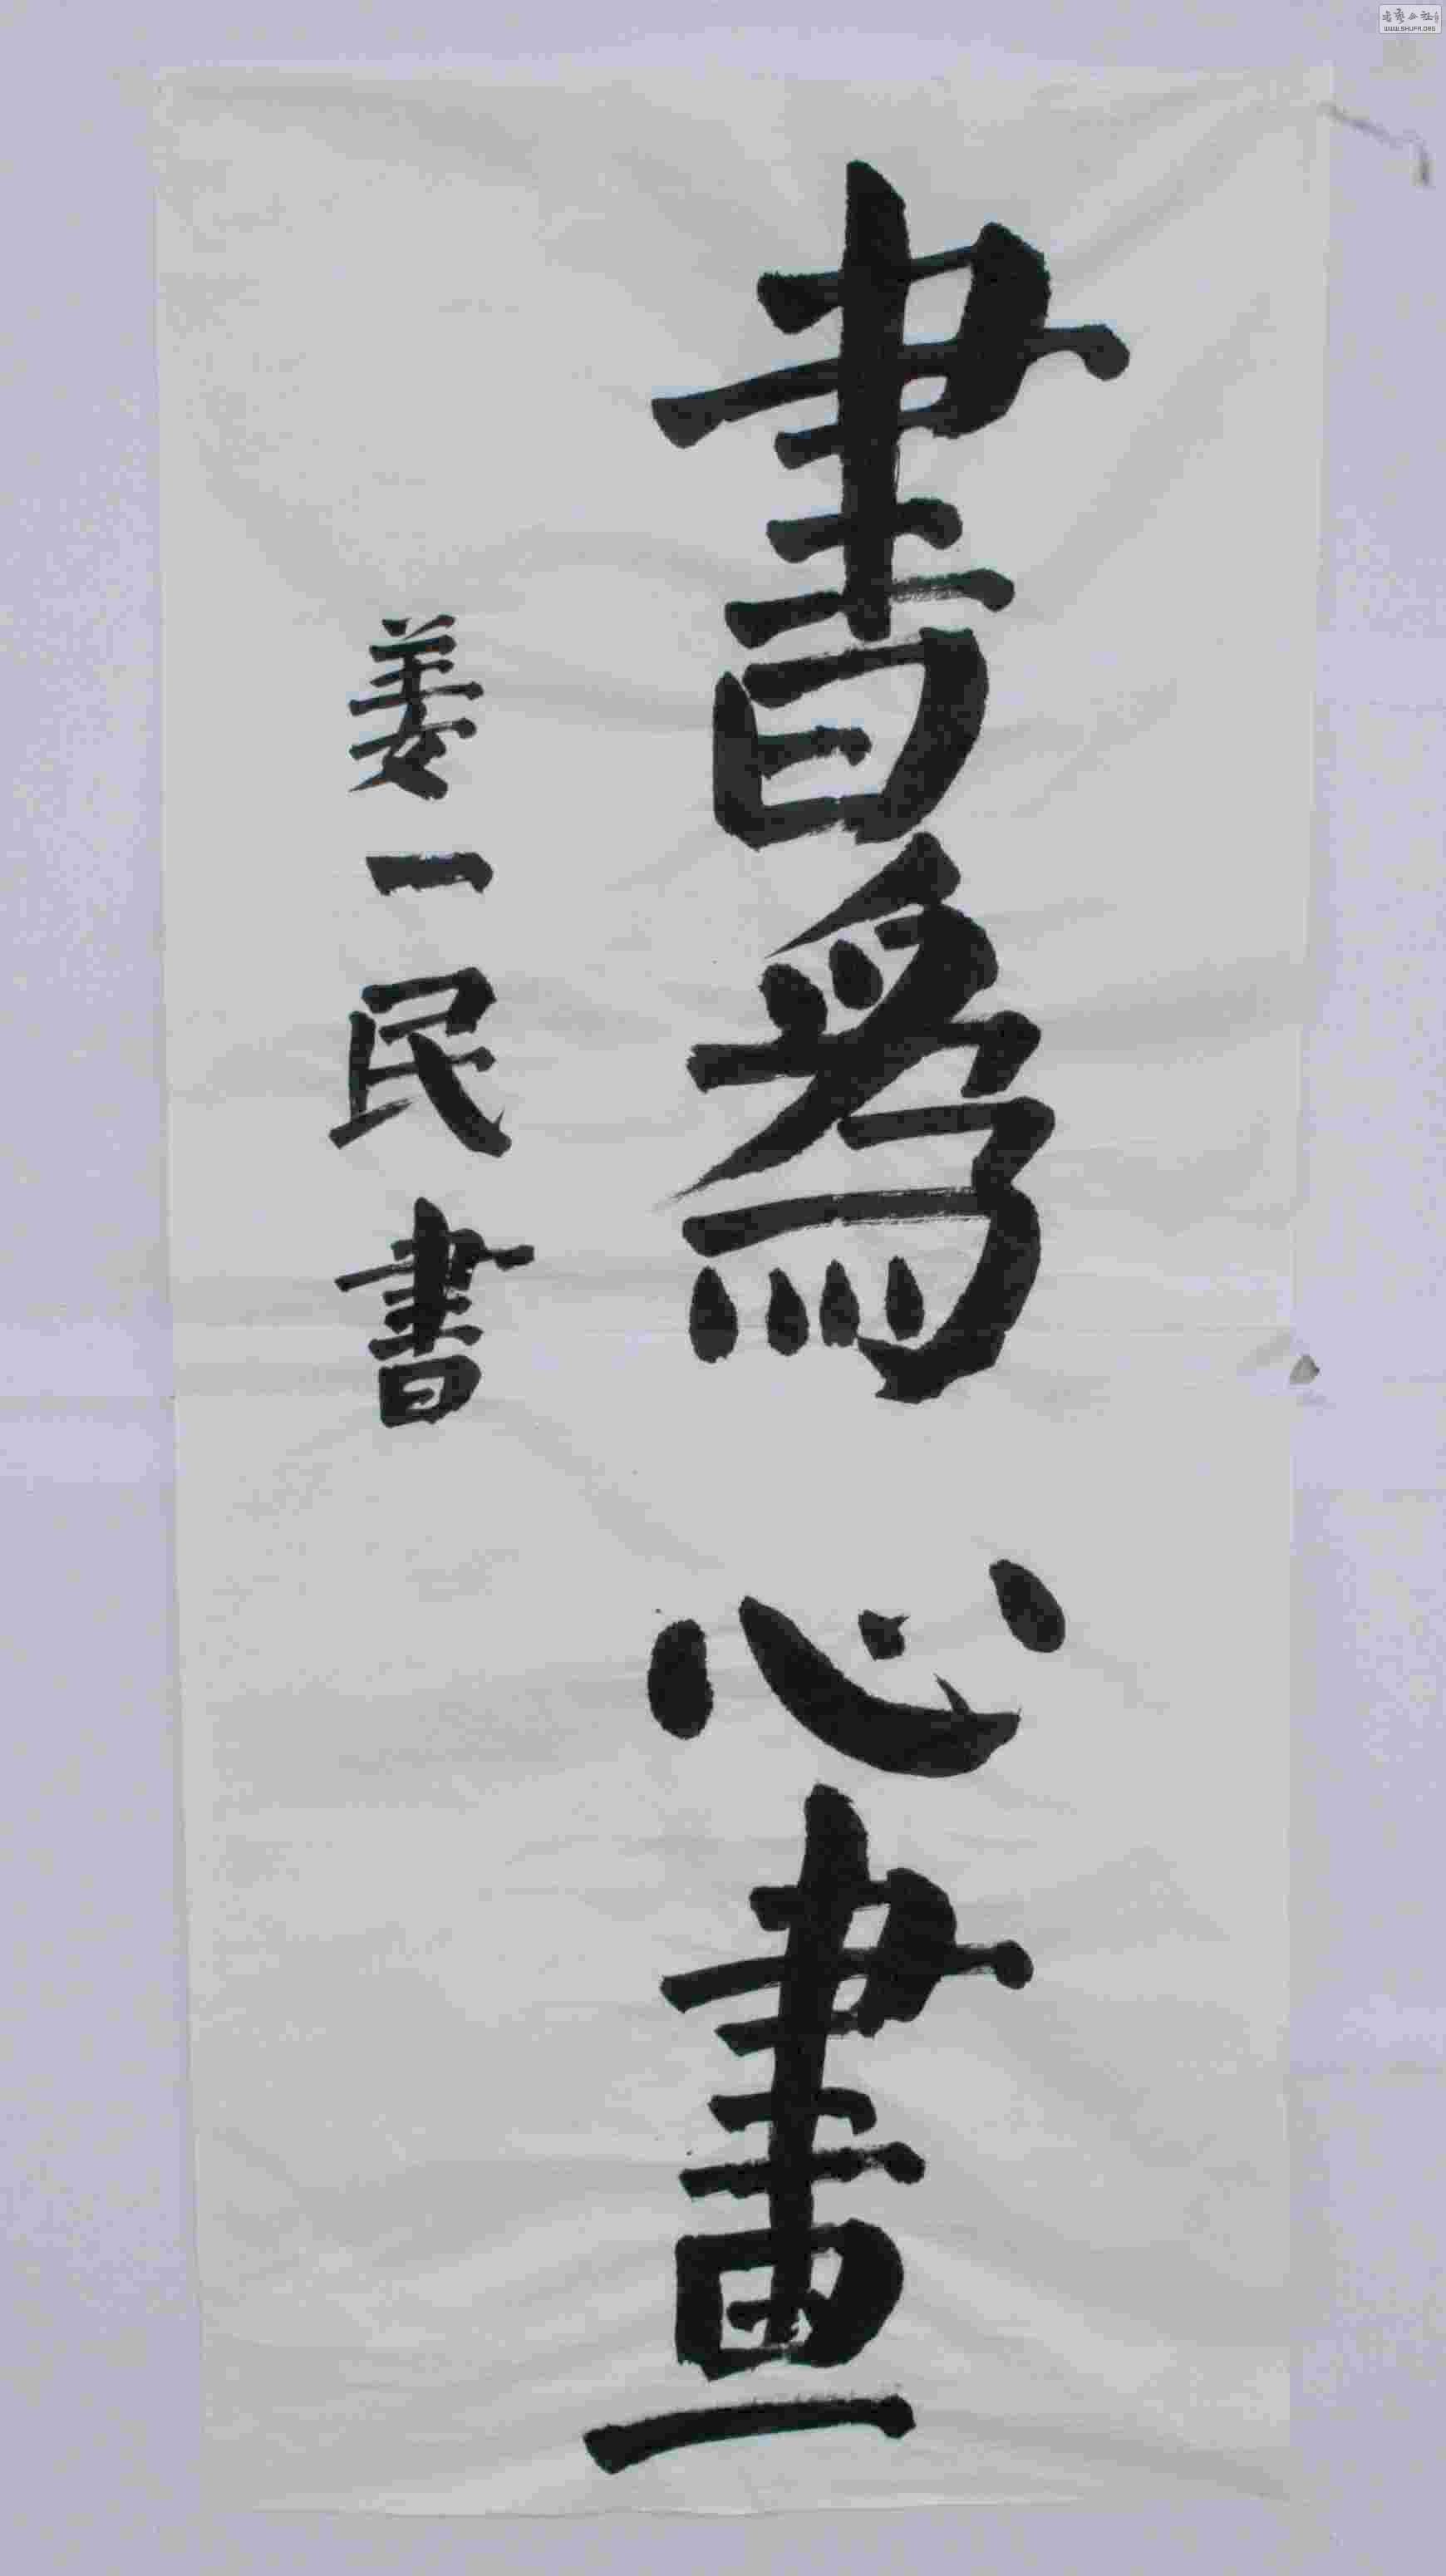 書爲心畫
姜一民書
WWW.SHUFA.ORG